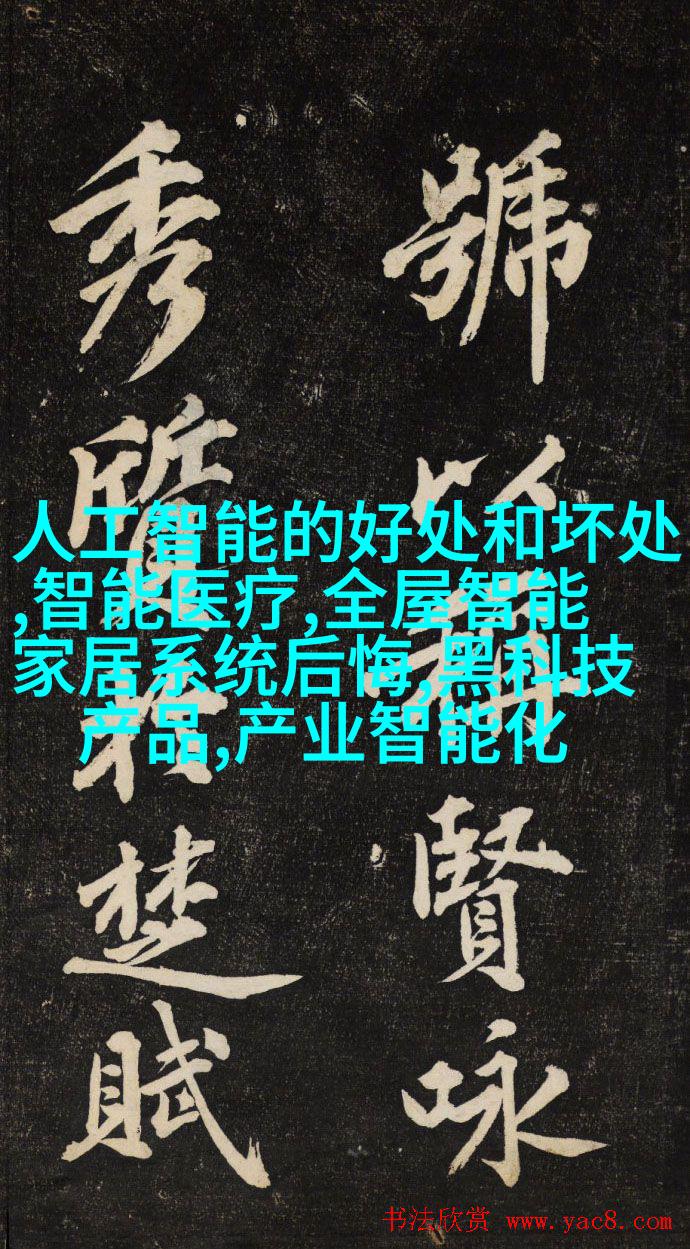 號
賢咏
秀
楚賦
人工智能的好处和坏处
,智能医疗,全屋智能
家居系统后悔,黑科技
产品,产业智能化
书法欣赏 www.yac8.com